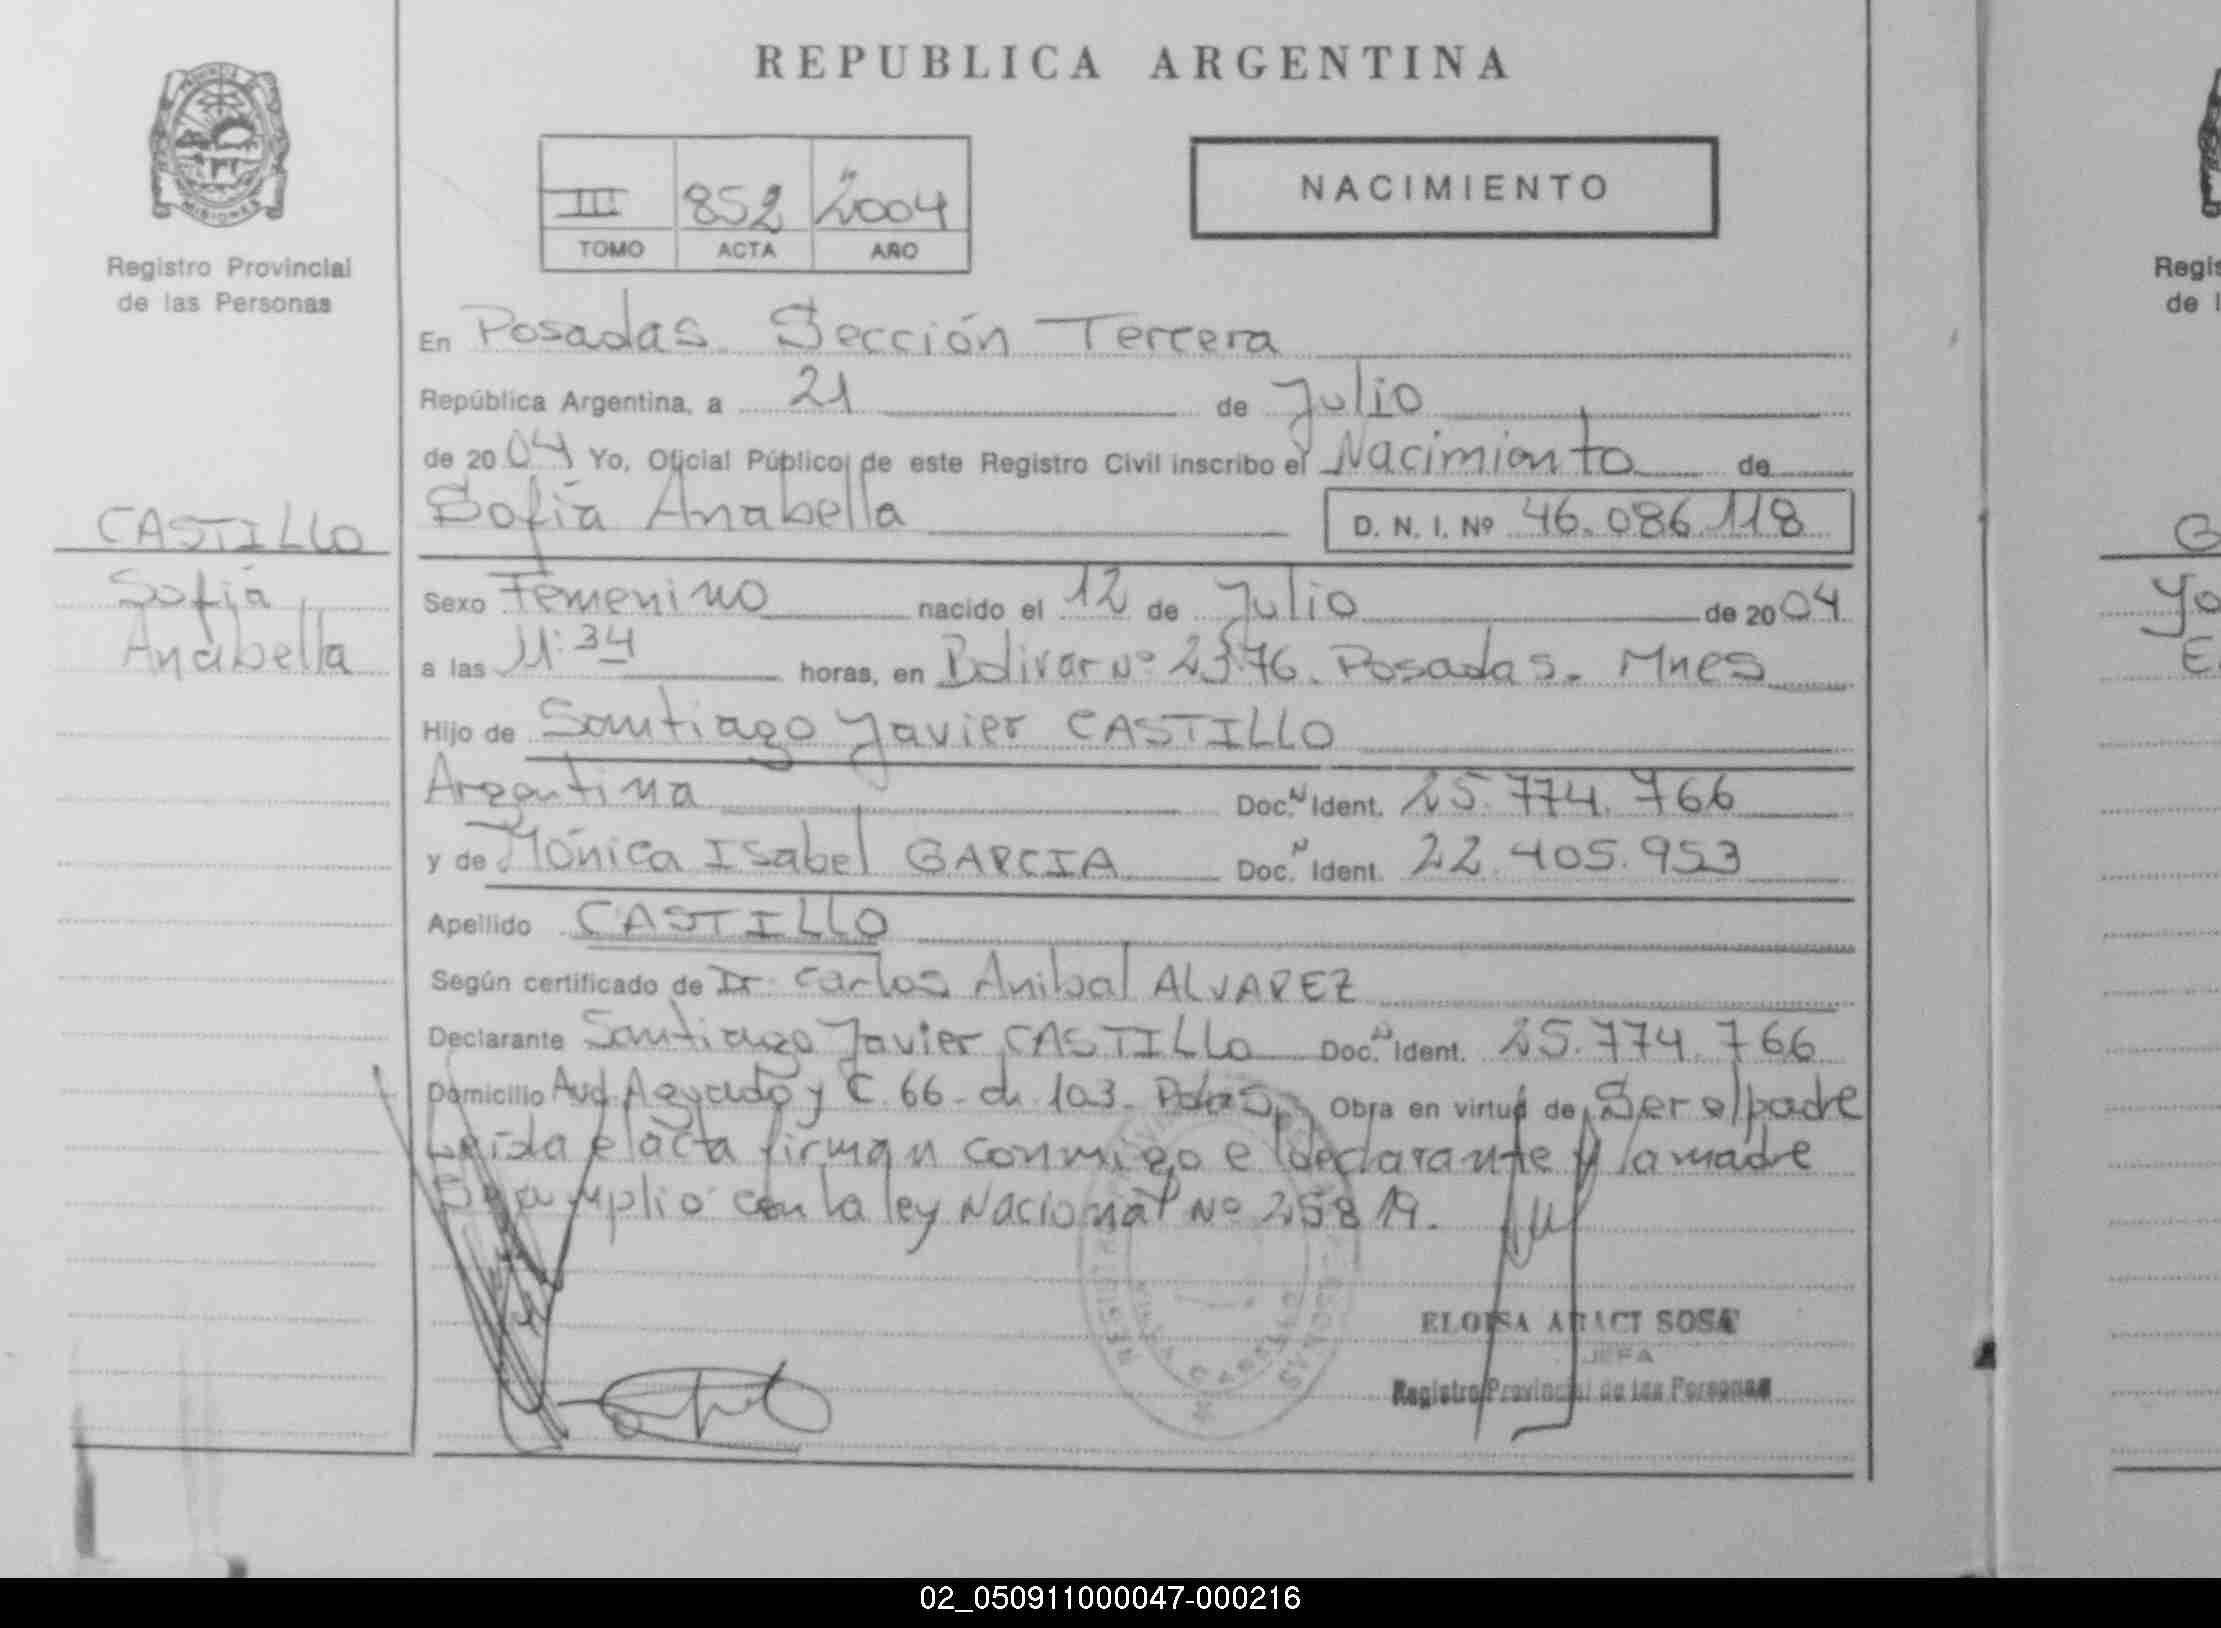 REPUBLICA ARGENTINA
MISIONES
Registro Provincial
de las Personas
III 852 2004
TOMO ACTA AÑO
NACIMIENTO
En Posadas Sección Tercera
República Argentina, a 21 de Julio
de 2004 Yo, Oficial Público de este Registro Civil inscribo el Nacimiento de
Sofía Anabella D. N. I. Nº 46.086.118
CASTILLO
Sofía
Anabella
Sexo Femenino nacido el 12 de Julio de 2004
a las 11:34 horas, en Bolivar Nº 2376. Posadas. Mnes
Hijo de Santiago Javier CASTILLO
Argentina Doc. N Ident. 25.774.766
y de Mónica Isabel GARCIA Doc. N Ident. 22.405.953
Apellido CASTILLO
Según certificado de Dr. Carlos Anibal ALVAREZ
Declarante Santiago Javier CASTILLO Doc. N Ident. 25.774.766
Domicilio Avd. Aguado y C. 66 - ch. 103. Pdas Obra en virtud de Ser el padre
Leída el acta firman conmigo el declarante y la madre
Se cumplió con la ley Nacional Nº 25819.
SOSA
JEFA
Registro Provincial de las Personas
Regis
de l
02_050911000047-000216